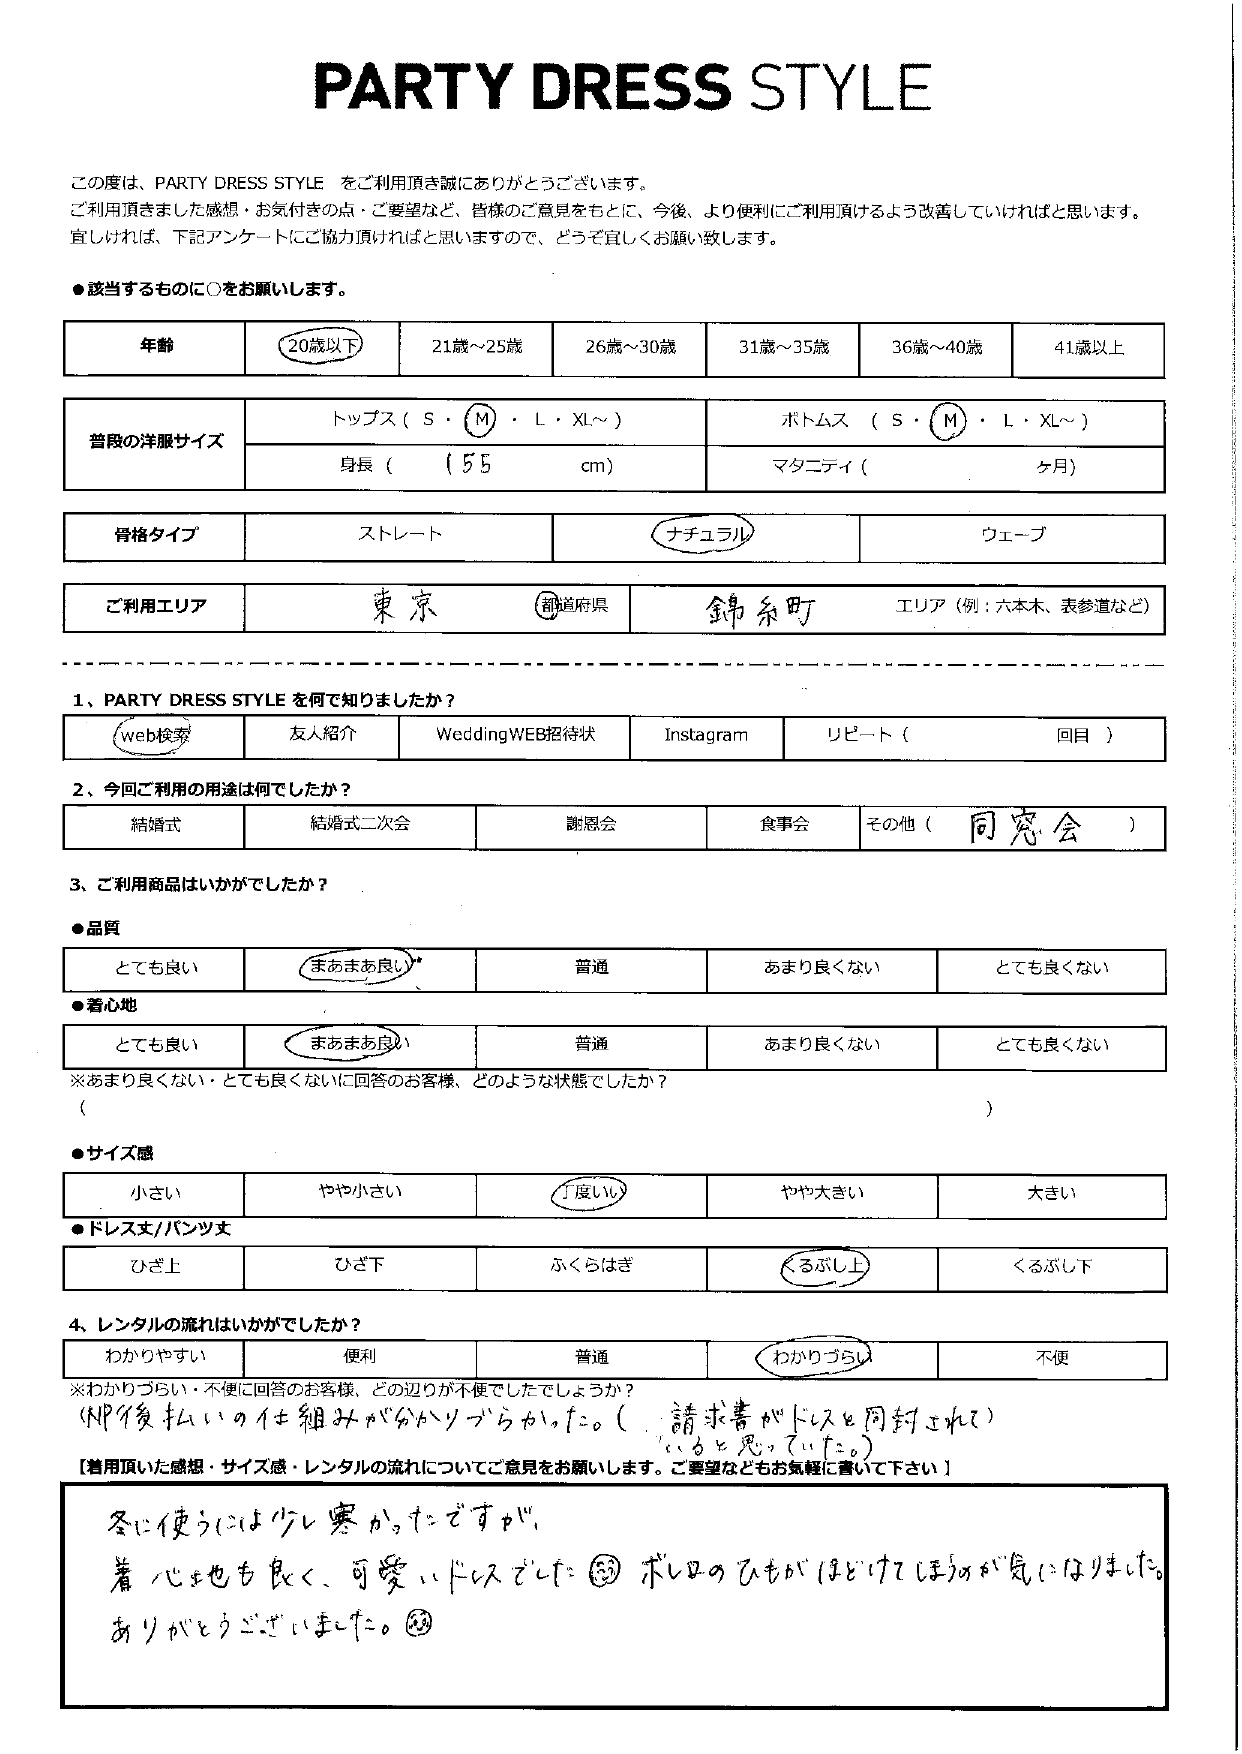 PARTY DRESS STYLE
この度は、PARTY DRESS STYLE をご利用頂き誠にありがとうございます。
ご利用頂きました感想・お気付きの点・ご要望など、皆様のご意見をもとに、今後、より便利にご利用頂けるよう改善していければと思います。
宜しければ、下記アンケートにご協力頂ければと思いますので、どうぞ宜しくお願い致します。
●該当するものに○をお願いします。
年齢 20歳以下 21歳～25歳 26歳～30歳 31歳～35歳 36歳～40歳 41歳以上
普段の洋服サイズ トップス ( S ・ M ・ L ・ XL～ ) ボトムス ( S ・ M ・ L ・ XL～ )
身長 ( 155 cm) マタニティ ( ヶ月)
骨格タイプ ストレート ナチュラル ウェーブ
ご利用エリア 東京 都道府県 錦糸町 エリア（例：六本木、表参道など）
1、PARTY DRESS STYLE を何で知りましたか？
web検索 友人紹介 WeddingWEB招待状 Instagram リピート ( 回目 )
2、今回ご利用の用途は何でしたか？
結婚式 結婚式二次会 謝恩会 食事会 その他 ( 同窓会 )
3、ご利用商品はいかがでしたか？
●品質
とても良い まあまあ良い 普通 あまり良くない とても良くない
●着心地
とても良い まあまあ良い 普通 あまり良くない とても良くない
※あまり良くない・とても良くないに回答のお客様、どのような状態でしたか？
( )
●サイズ感
小さい やや小さい 丁度いい やや大きい 大きい
●ドレス丈/パンツ丈
ひざ上 ひざ下 ふくらはぎ くるぶし上 くるぶし下
4、レンタルの流れはいかがでしたか？
わかりやすい 便利 普通 わかりづらい 不便
※わかりづらい・不便に回答のお客様、どの辺りが不便でしたでしょうか？
(NP後払いの仕組みが分かりづらかった。( 請求書がドレスと同封されて)
いると思っていた。)
【着用頂いた感想・サイズ感・レンタルの流れについてご意見をお願いします。ご要望などもお気軽に書いて下さい 】
冬に使うには少し寒かったですが、
着心地も良く、可愛いドレスでした ボレロのひもがほどけてしまうのが気になりました。
ありがとうございました。